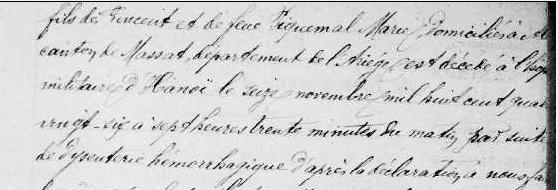 fils de Vincent et de feue Piquemal Marie, domiciliés à
canton de Massat, département de l'Ariège, est décédé à l'
militaire d'Hanoï le seize novembre mil huit cent quat
vingt-six à sept heures trente minutes du matin, par suite
de dysenterie hémorrhagique d'après la déclaration à nous fai